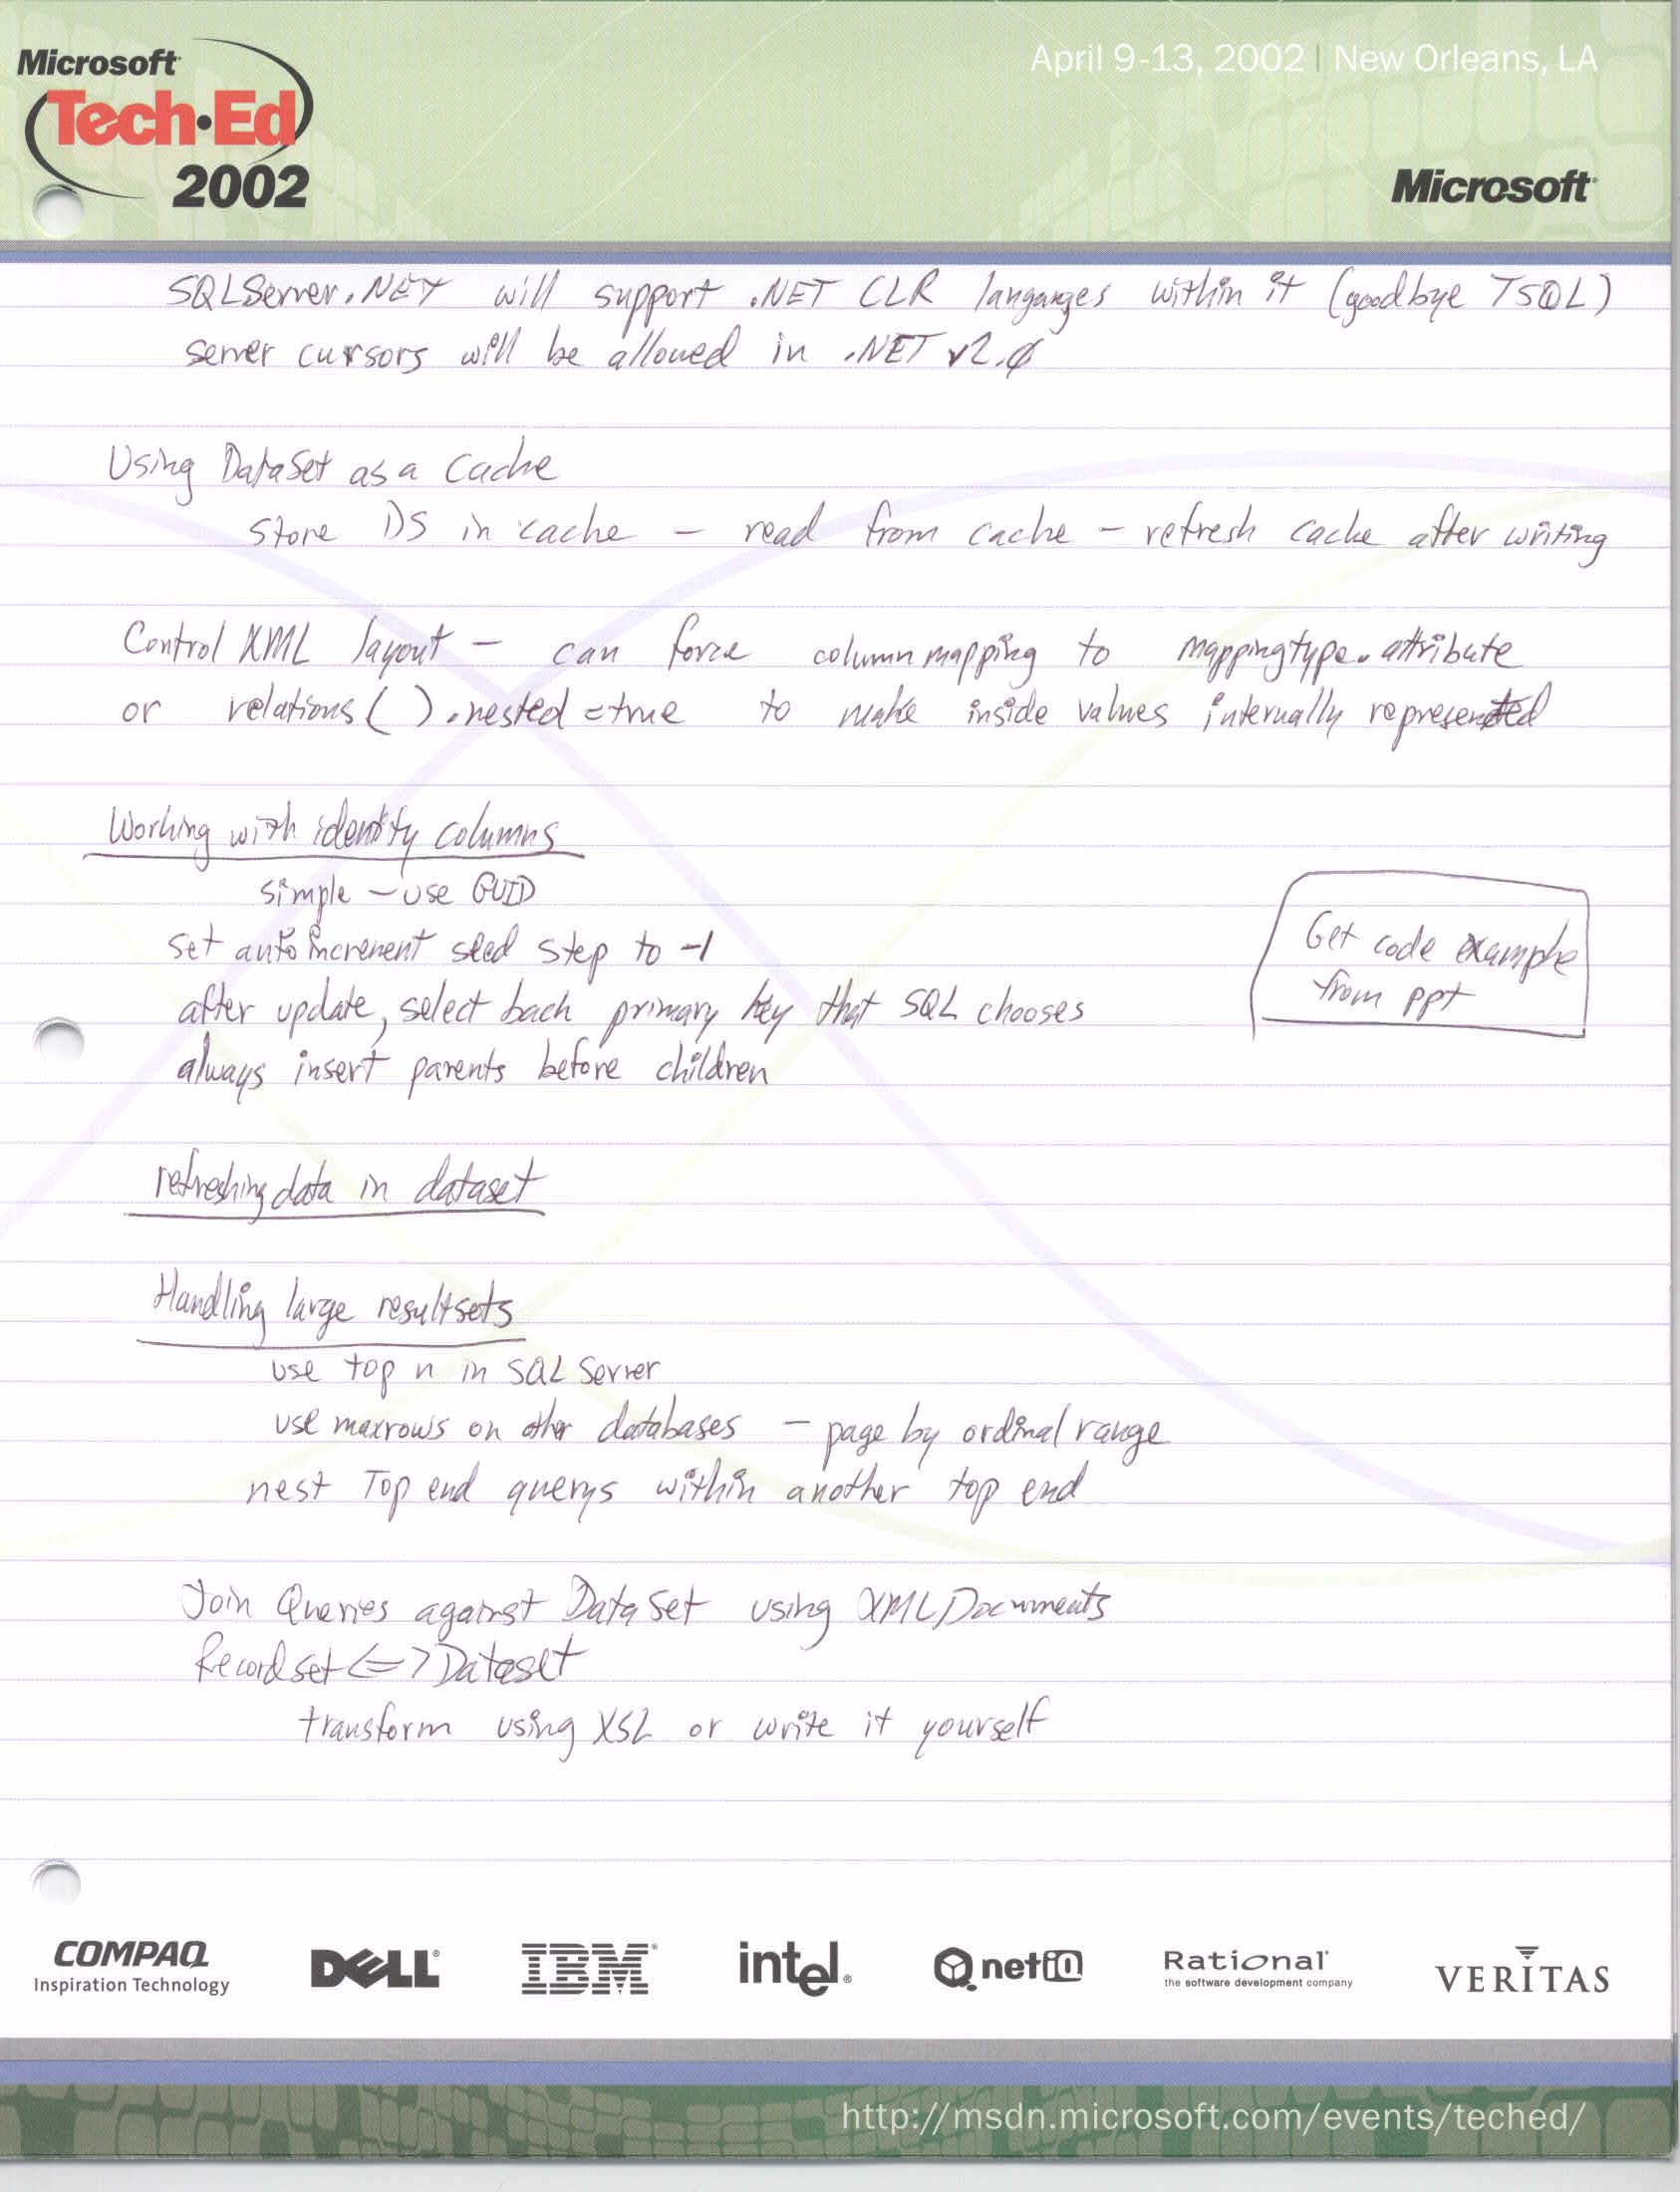 Microsoft
Tech·Ed
2002
April 9-13, 2002 | New Orleans, LA
Microsoft
SQLServer.NET will support .NET CLR langauges within it (goodbye TSQL)
server cursors will be allowed in .NET v2.0
Using DataSet as a cache
store DS in cache – read from cache – refresh cache after writing
Control XML layout – can force columnmapping to mappingtype.attribute
or relations( ).nested=true to make inside values internally represented
Working with identity columns
simple – use GUID
set autoincrement seed step to -1
after update, select back primary key that SQL chooses
always insert parents before children
Get code example
from ppt
refreshing data in dataset
Handling large resultsets
use top n in SQL Server
use maxrows on other databases – page by ordinal range
nest Top end querys within another top end
Join Queries against DataSet using XMLDocuments
Recordset <=> Dataset
transform using XSL or write it yourself
COMPAQ
Inspiration Technology
DELL
IBM
intel
netiQ
Rational
the software development company
VERITAS
http://msdn.microsoft.com/events/teched/